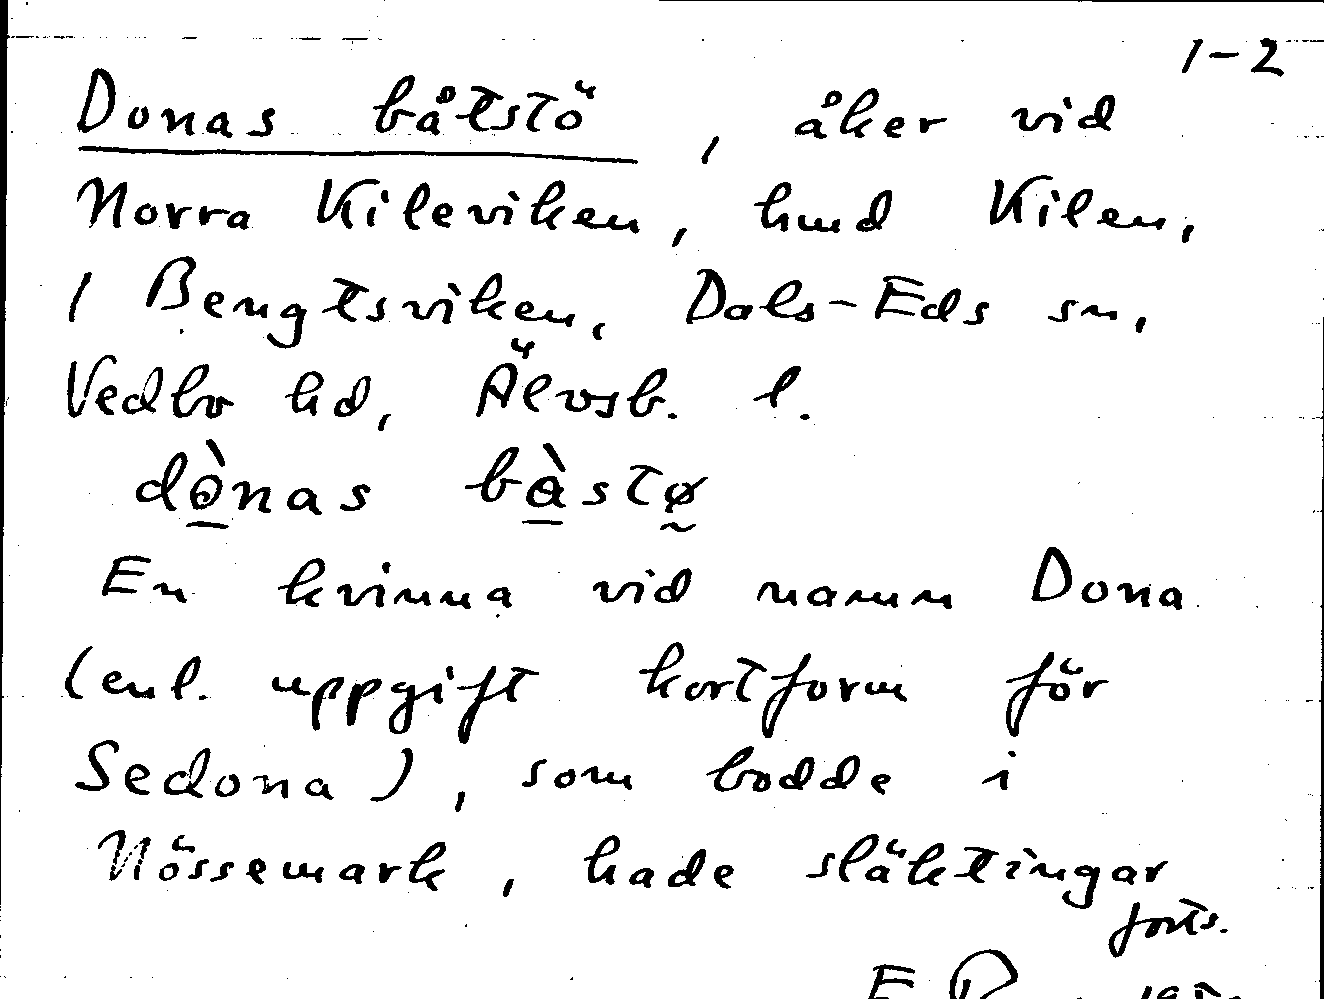 1-2
Donas båtstö, åker vid
Norra Kileviken, hmd Kilen,
1 Bengtsviken, Dals-Eds sn,
Vedbo hd, Älvsb. l.
dònas bàstø
En kvinna vid namn Dona
(enl. uppgift kortform för
Sedona), som bodde i
Nössemark, hade släktingar
forts.